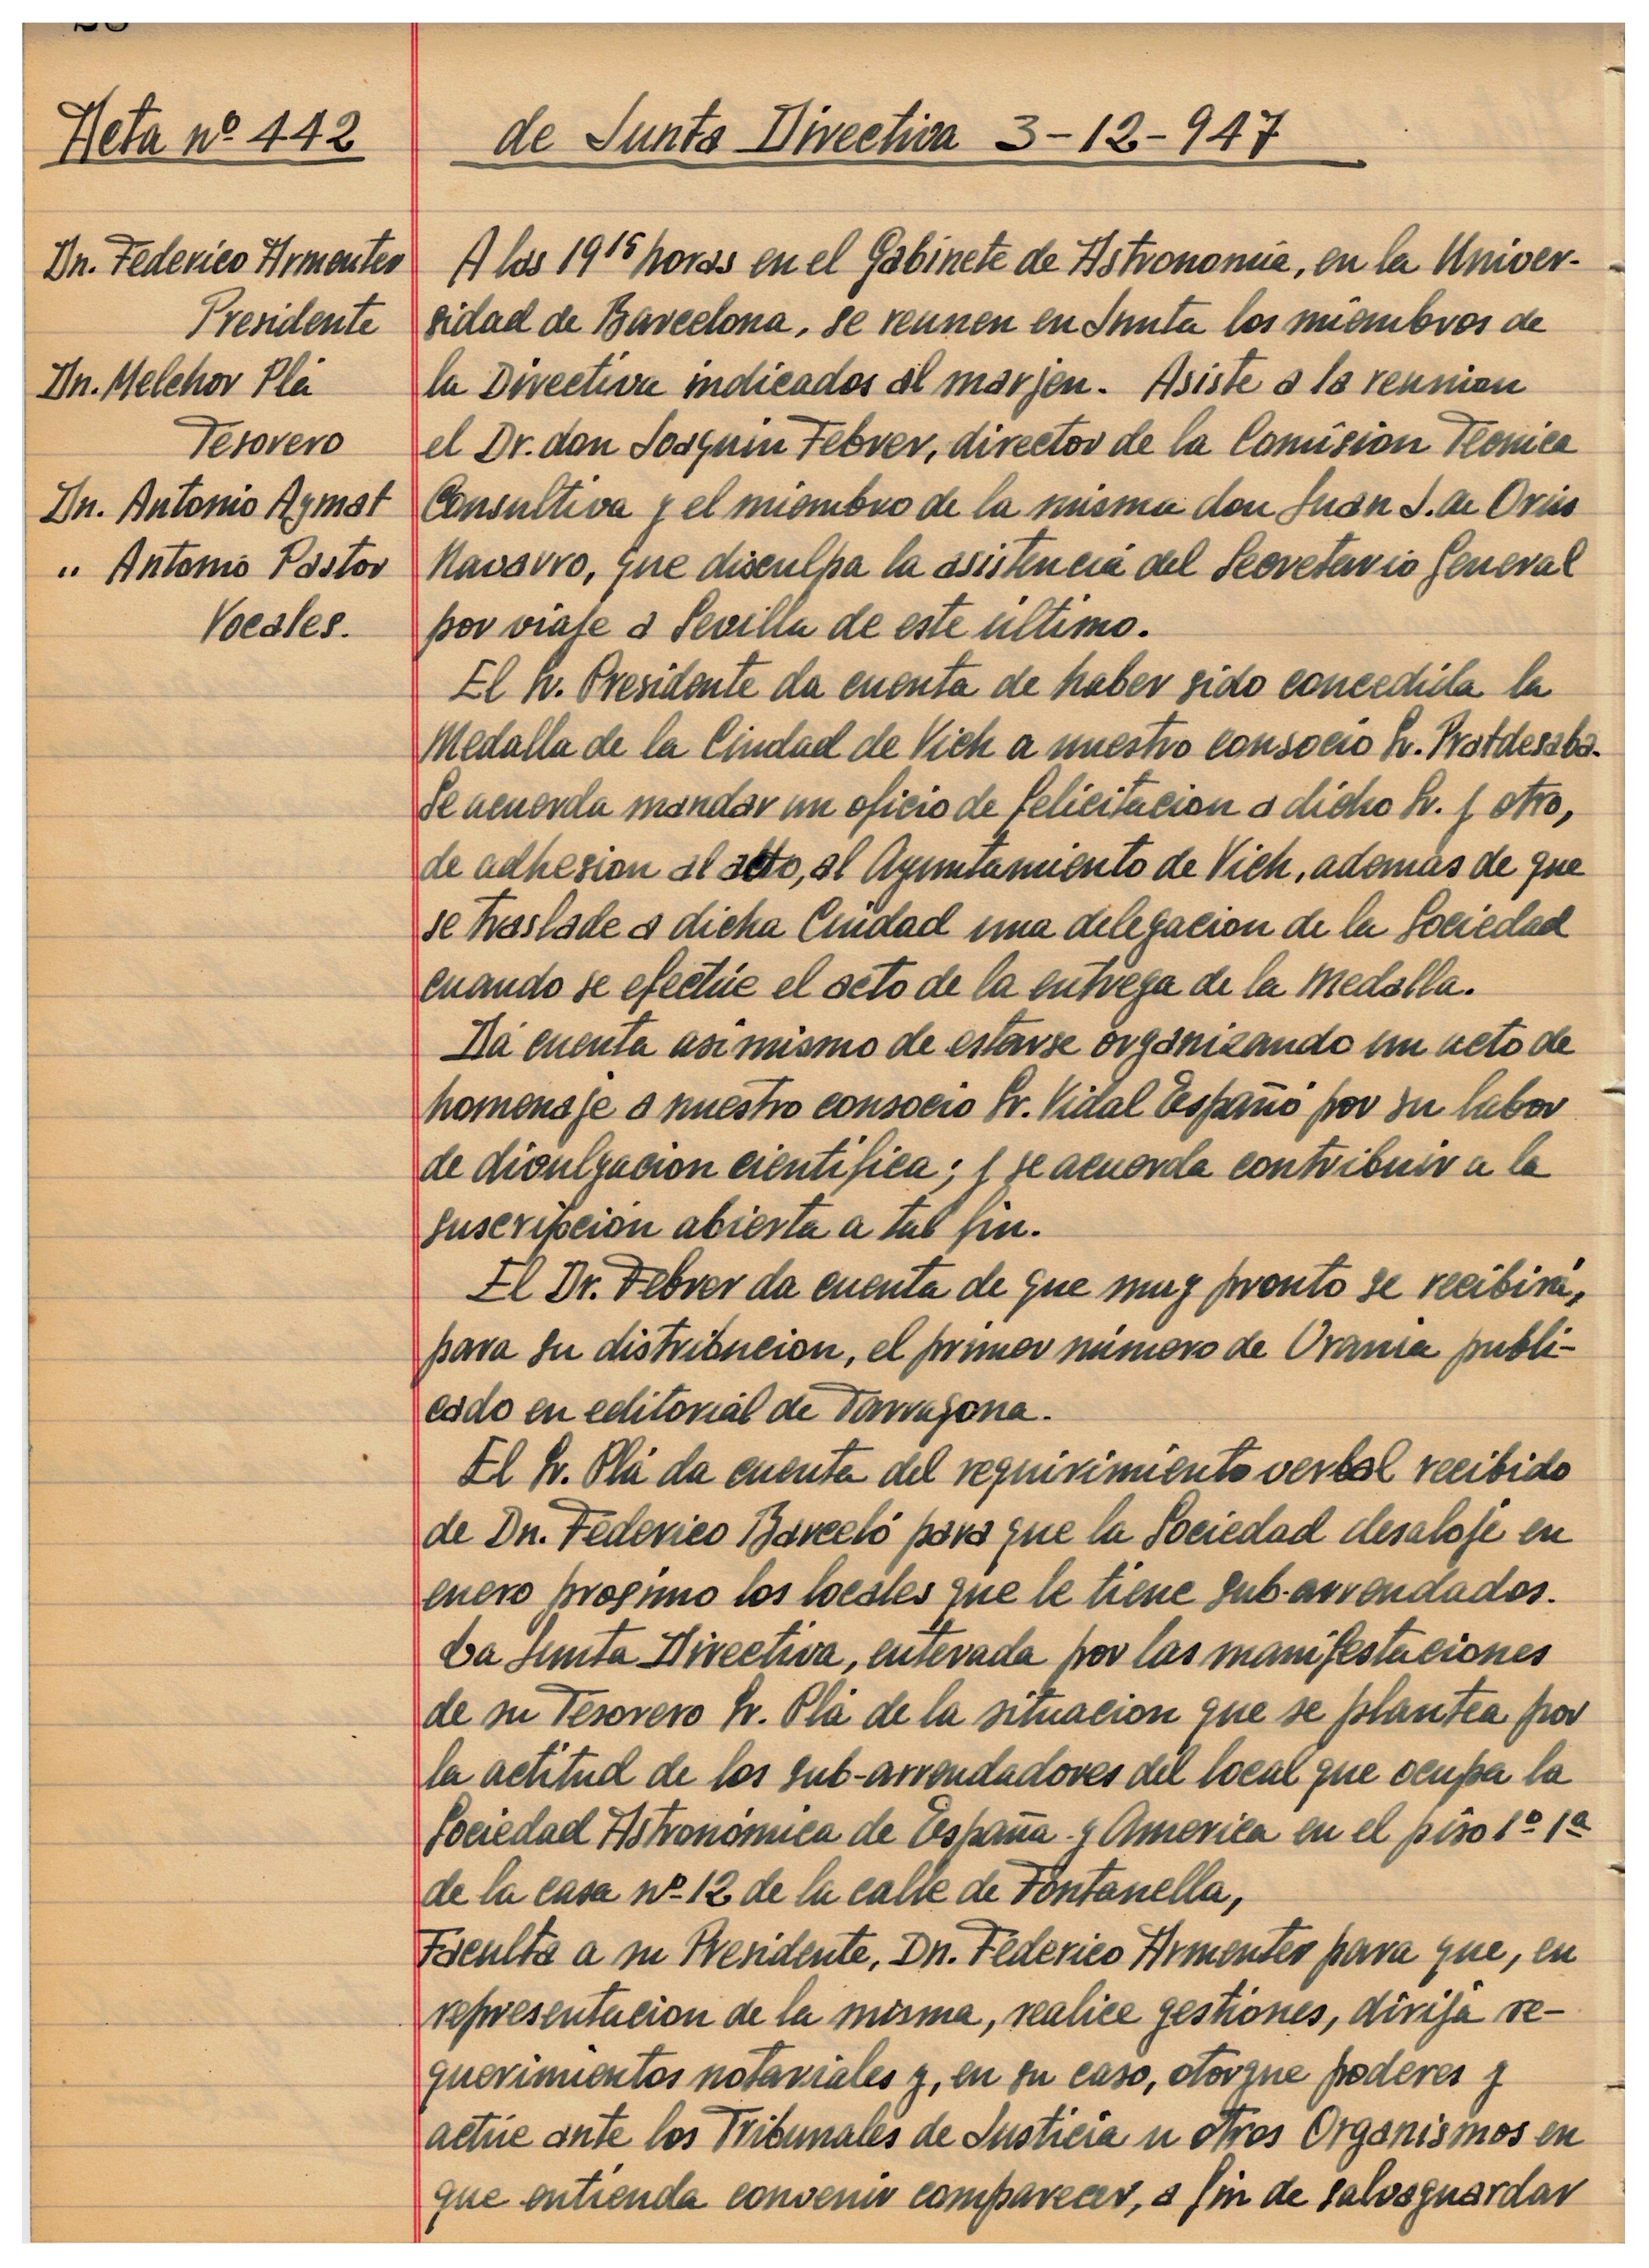 Acta nº 442
de Junta Directiva 3-12-947
Dn. Federico Armenter
Presidente
Dn. Melchor Plá
Tesorero
Dn. Antonio Aymat
" Antonio Pastor
Vocales.
A las 19¹⁵ horas en el Gabinete de Astronomía, en la Univer-
sidad de Barcelona, se reunen en Junta los miembros de
la Directiva indicados al marjen. Asiste a la reunion
el Dr. don Joaquin Febrer, director de la Comision Tecnica
Consultiva y el miembro de la misma don Juan J. de Orús
Navarro, que disculpa la asistencia del Secretario General
por viaje a Sevilla de este último.
El Sr. Presidente da cuenta de haber sido concedida la
Medalla de la Ciudad de Vich a nuestro consocio Sr. Pratdesaba.
Se acuerda mandar un oficio de felicitacion a dicho Sr. y otro,
de adhesion al acto, al Ayuntamiento de Vich, ademas de que
se traslade a dicha Ciudad una delegacion de la Sociedad
cuando se efectúe el acto de la entrega de la Medalla.
Dá cuenta asimismo de estarse organizando un acto de
homenaje a nuestro consocio Sr. Vidal Españó por su labor
de divulgacion científica; y se acuerda contribuir a la
suscripcion abierta a tal fin.
El Dr. Febrer da cuenta de que muy pronto se recibirá,
para su distribucion, el primer número de Urania publi-
cado en editorial de Tarragona.
El Sr. Plá da cuenta del requirimiento verbal recibido
de Dn. Federico Barceló para que la Sociedad desaloje en
enero progimo los locales que le tiene sub-arrendados.
La Junta Directiva, enterada por las manifestaciones
de su Tesorero Sr. Plá de la situacion que se plantea por
la actitud de los sub-arrendadores del local que ocupa la
Sociedad Astronómica de España y America en el piso 1º 1ª
de la casa nº 12 de la calle de Fontanella,
Faculta a su Presidente, Dn. Federico Armenter para que, en
representacion de la misma, realice gestiones, dirija re-
querimientos notariales y, en su caso, otorgue poderes y
actúe ante los Tribunales de Justicia u otros Organismos en
que entienda convenir comparecer, a fin de salvaguardar